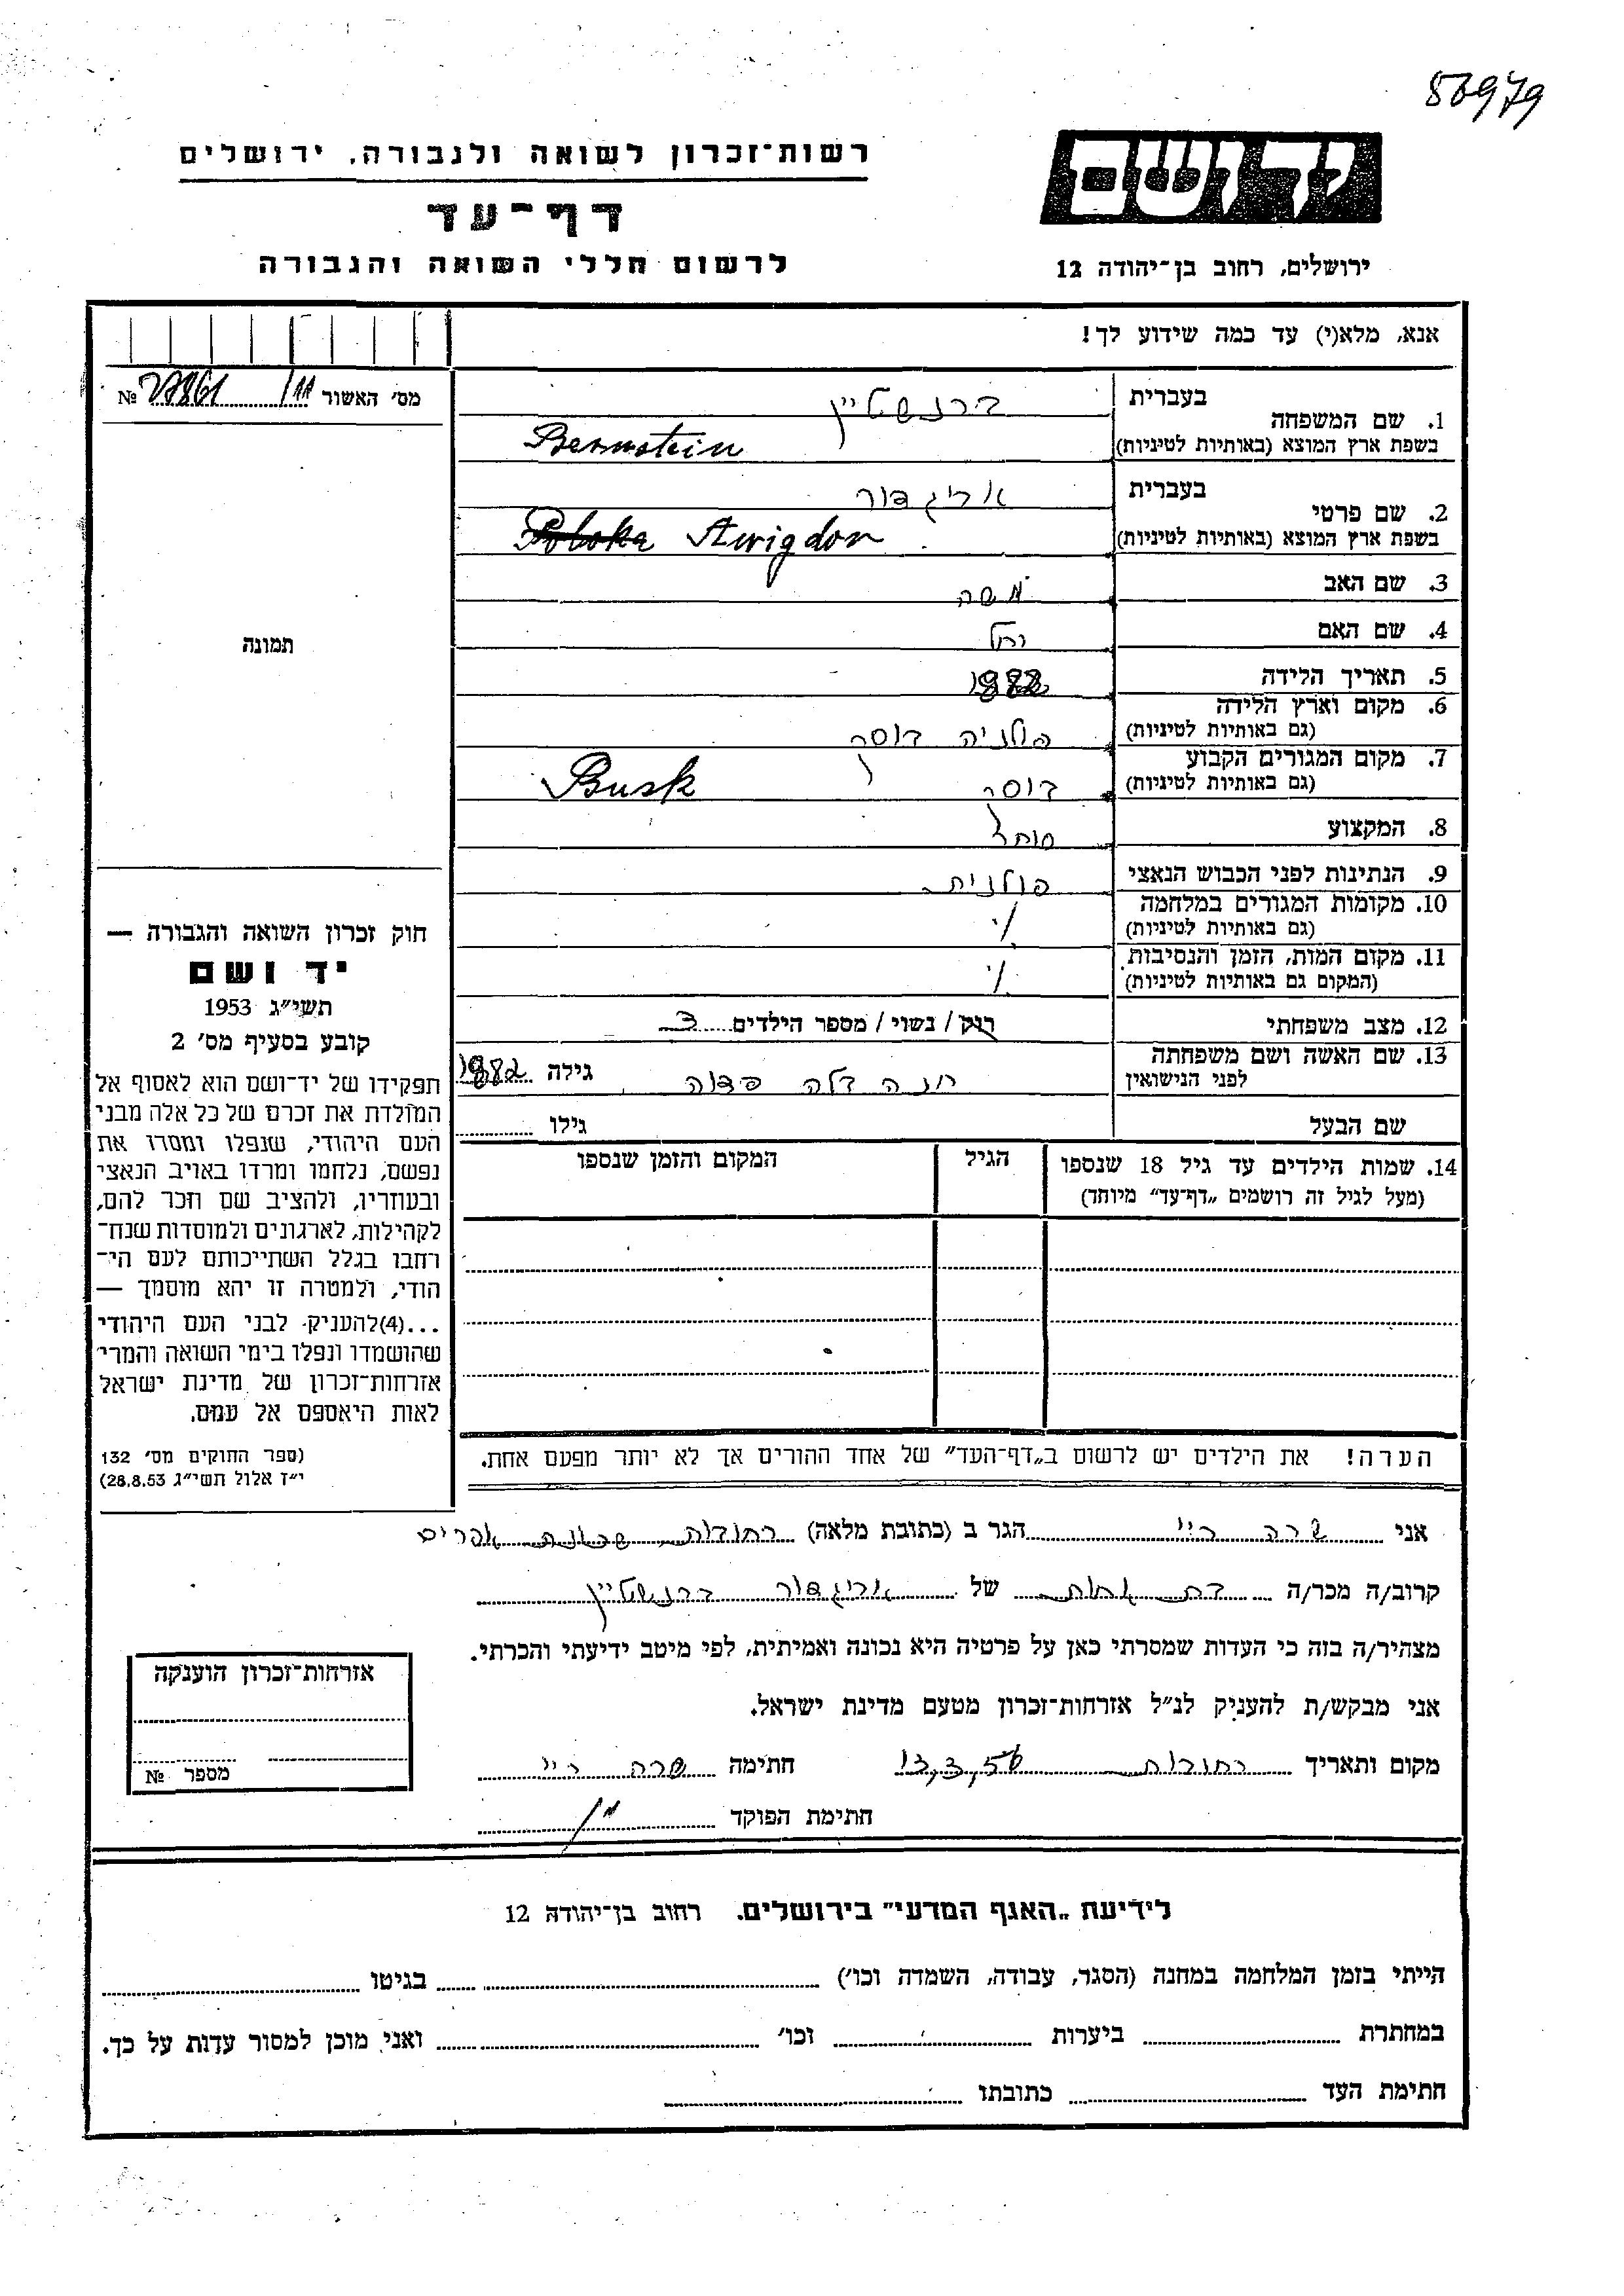 56979
רשות־זכרון לשואה ולגבורה, ירושלים
דף־עד
לרשום חללי השואה והגבורה
יד ושם
ירושלים, רחוב בן־יהודה 12
אנא, מלא(י) עד כמה שידוע לך!
מס׳ האשור № 27861/
תמונה
1. שם המשפחה בעברית ברנשטיין
בשפת ארץ המוצא (באותיות לטיניות) Bernstein
2. שם פרטי בעברית אביגדור
בשפת ארץ המוצא (באותיות לטיניות) Awigdor
3. שם האב משה
4. שם האם רחל
5. תאריך הלידה 1882
6. מקום וארץ הלידה (גם באותיות לטיניות) פולניה בוסק
7. מקום המגורים הקבוע (גם באותיות לטיניות) בוסק Busk
8. המקצוע סוחר
9. הנתינות לפני הכבוש הנאצי פולנית
10. מקומות המגורים במלחמה (גם באותיות לטיניות)
11. מקום המות, הזמן והנסיבות (המקום גם באותיות לטיניות)
12. מצב משפחתי רווק / נשוי / מספר הילדים 3
13. שם האשה ושם משפחתה לפני הנישואין גילה 1882
שם הבעל גילו
14. שמות הילדים עד גיל 18 שנספו הגיל המקום והזמן שנספו
(מעל לגיל זה רושמים „דף־עד” מיוחד)
הערה! את הילדים יש לרשום ב„דף־העד” של אחד ההורים אך לא יותר מפעם אחת.
חוק זכרון השואה והגבורה —
יד ושם
תשי״ג 1953
קובע בסעיף מס׳ 2
תפקידו של יד־ושם הוא לאסוף אל
המולדת את זכרם של כל אלה מבני
העם היהודי, שנפלו ומסרו את
נפשם, נלחמו ומרדו באויב הנאצי
ובעוזריו, ולהציב שם וזכר להם,
לקהילות, לארגונים ולמוסדות שנח־
רחבו בגלל השתייכותם לעם הי־
הודי, ולמטרה זו יהא מוסמך —
...(4) להעניק לבני העם היהודי
שהושמדו ונפלו בימי השואה והמרי
אזרחות־זכרון של מדינת ישראל
לאות היאספם אל עמם.
(ספר החוקים מס׳ 132
י״ז אלול תשי״ג 28.8.53)
אני שרה הגר ב (כתובת מלאה) רחובות, שכונת אפרים
קרוב/ה מכר/ה בת אחות של אביגדור ברנשטיין
מצהיר/ה בזה כי העדות שמסרתי כאן על פרטיה היא נכונה ואמיתית, לפי מיטב ידיעתי והכרתי.
אני מבקש/ת להעניק לנ״ל אזרחות־זכרון מטעם מדינת ישראל.
מקום ותאריך רחובות 13,3,56 חתימה שרה
חתימת הפוקד
אזרחות־זכרון הוענקה
מספר №
לידיעת „האגף המדעי” בירושלים. רחוב בן־יהודה 12
הייתי בזמן המלחמה במחנה (הסגר, עבודה, השמדה וכו׳) בגיטו
במחתרת ביערות וכו׳ ואני מוכן למסור עדות על כך.
חתימת העד כתובתו